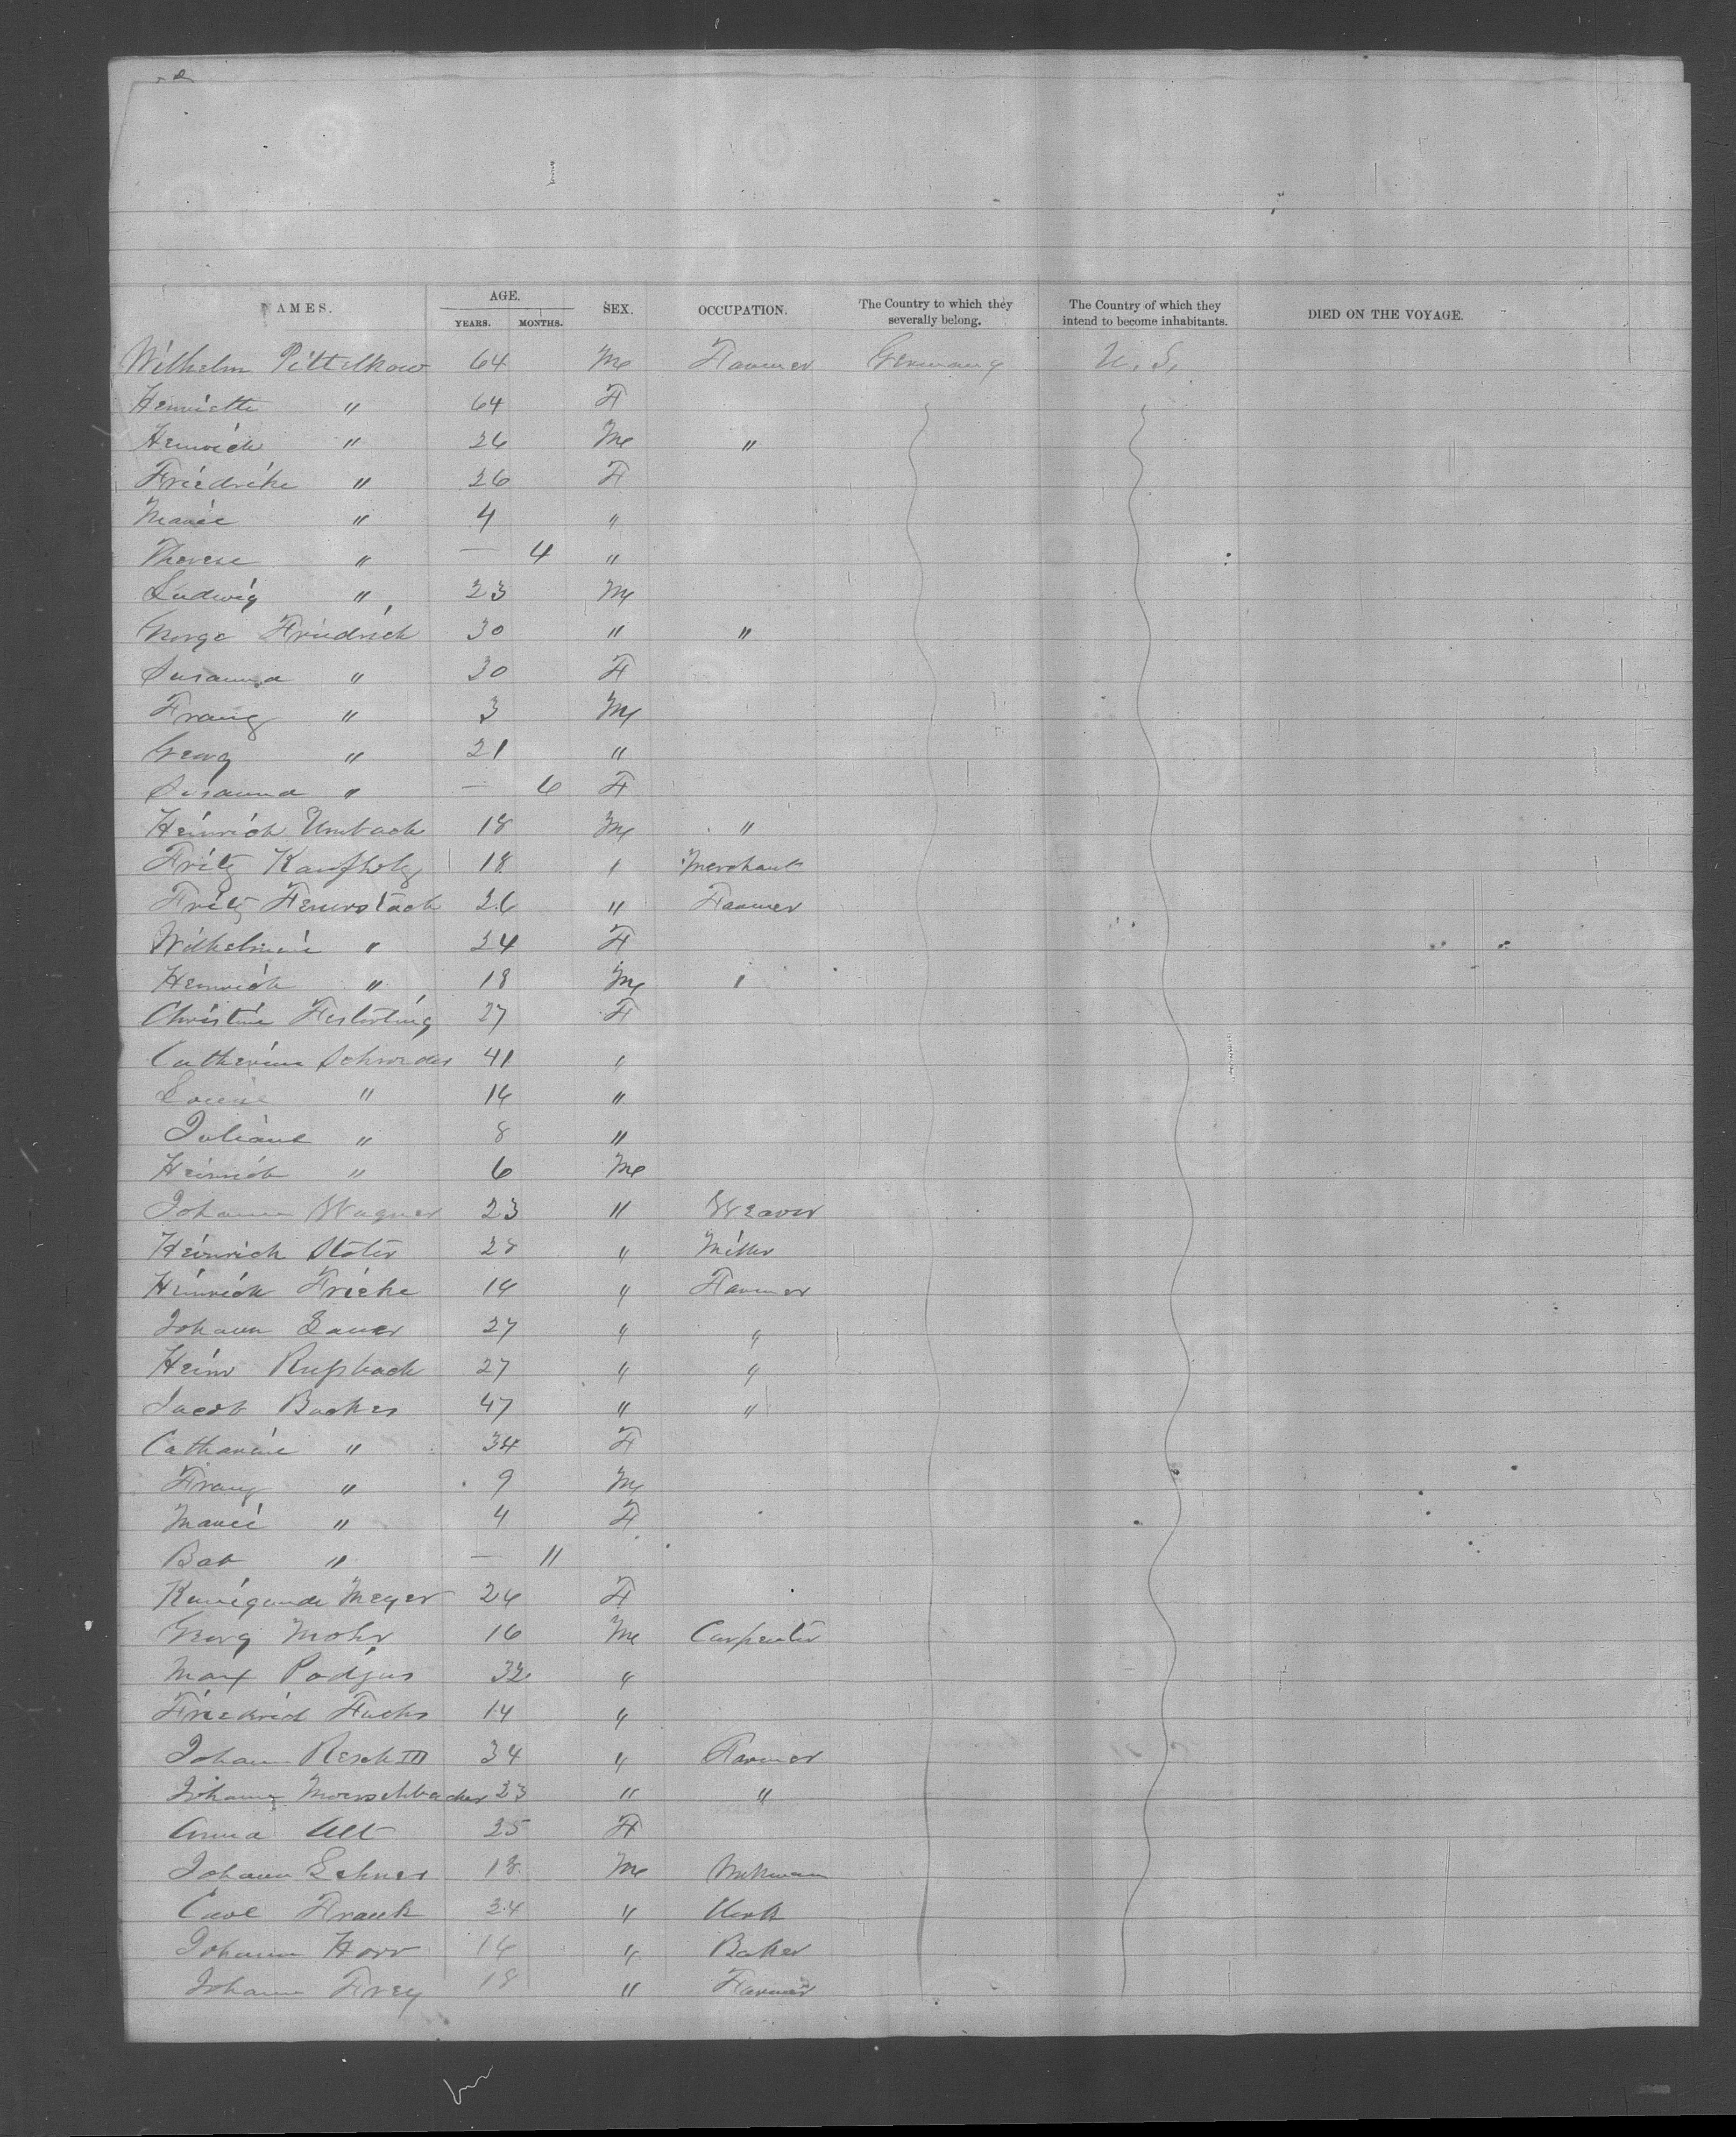 NAMES. AGE. YEARS. MONTHS. SEX. OCCUPATION. The Country to which they severally belong. The Country of which they intend to become inhabitants. DIED ON THE VOYAGE.
Wilhelm Pittelkow 64 M Farmer Germany U.S.
Henriette " 64 F
Heinrich " 26 M "
Friedrike " 26 F
Marie " 4 "
Therese " — 4 "
Ludwig " 23 M
George Friedrich 30 " "
Susanna " 30 F
Franz " 3 M
Georg " 21 "
Susanna " — 6 F
Heinrich Umbach 18 M "
Fritz Kaufholz 18 " Merchant
Fritz Feuerstack 26 " Farmer
Wilhelmine " 24 F
Heinrich " 18 M "
Christine Festerling 27 F
Catherine Schroeder 41 "
Louise " 16 "
Juliane " 8 "
Heinrich " 6 M
Johann Wagner 23 " Weaver
Heinrich Stoter 28 " Miller
Heinrich Fricke 16 " Farmer
Johann Sauer 27 " "
Heinr Rußbach 27 " "
Jacob Backes 47 " "
Catharine " 34 F
Franz " 9 M
Marie " 4 F
Bab " — 11
Kunigunde Meyer 26 F
Georg Mohr 16 M Carpenter
Max Podjus 32 "
Friedrich Fuchs 14 "
Johann Resch III 34 " Farmer
Johann Moerschbacher 23 " "
Anna Alt 25 F
Johann Lehner 18 M
Carl Frank 24 " Clerk
Johann Horr 16 " Baker
Johann Frey 18 " Farmer